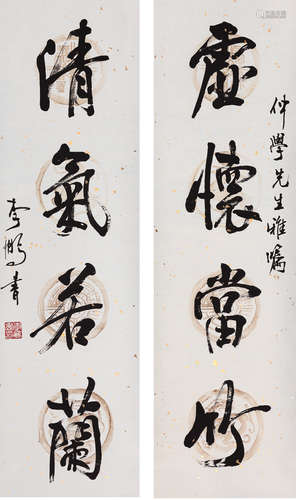 仲學先生雅囑
虛懷當竹
清氣若蘭
李 書